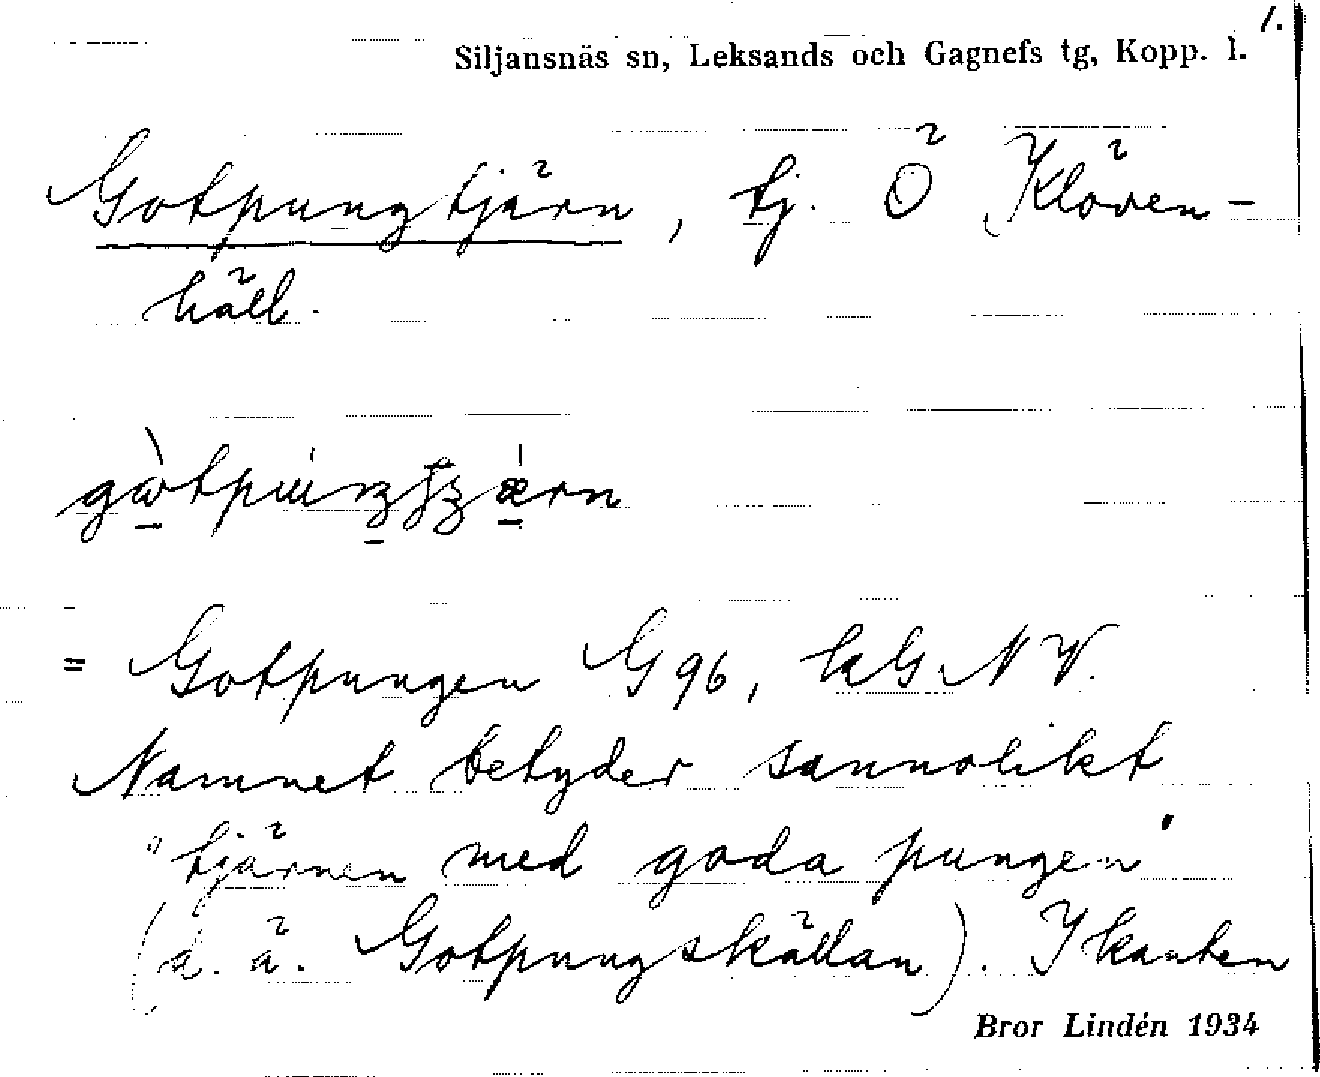 1.
Siljansnäs sn, Leksands och Gagnefs tg, Kopp. l.
Gotpungtjärn, tj. Ö Klöven-
häll.
= Gotpungen G96, kG NV.
Namnet betyder sannolikt
"tjärnen med goda pungen"
(d. ä. Gotpungskällan). I kanten
Bror Lindén 1934